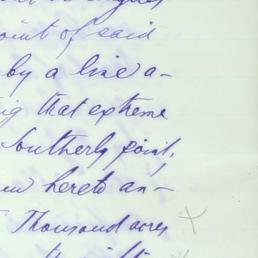 point of said
by a line a-
that extreme
Southerly point,
hereto an-
Thousand acres